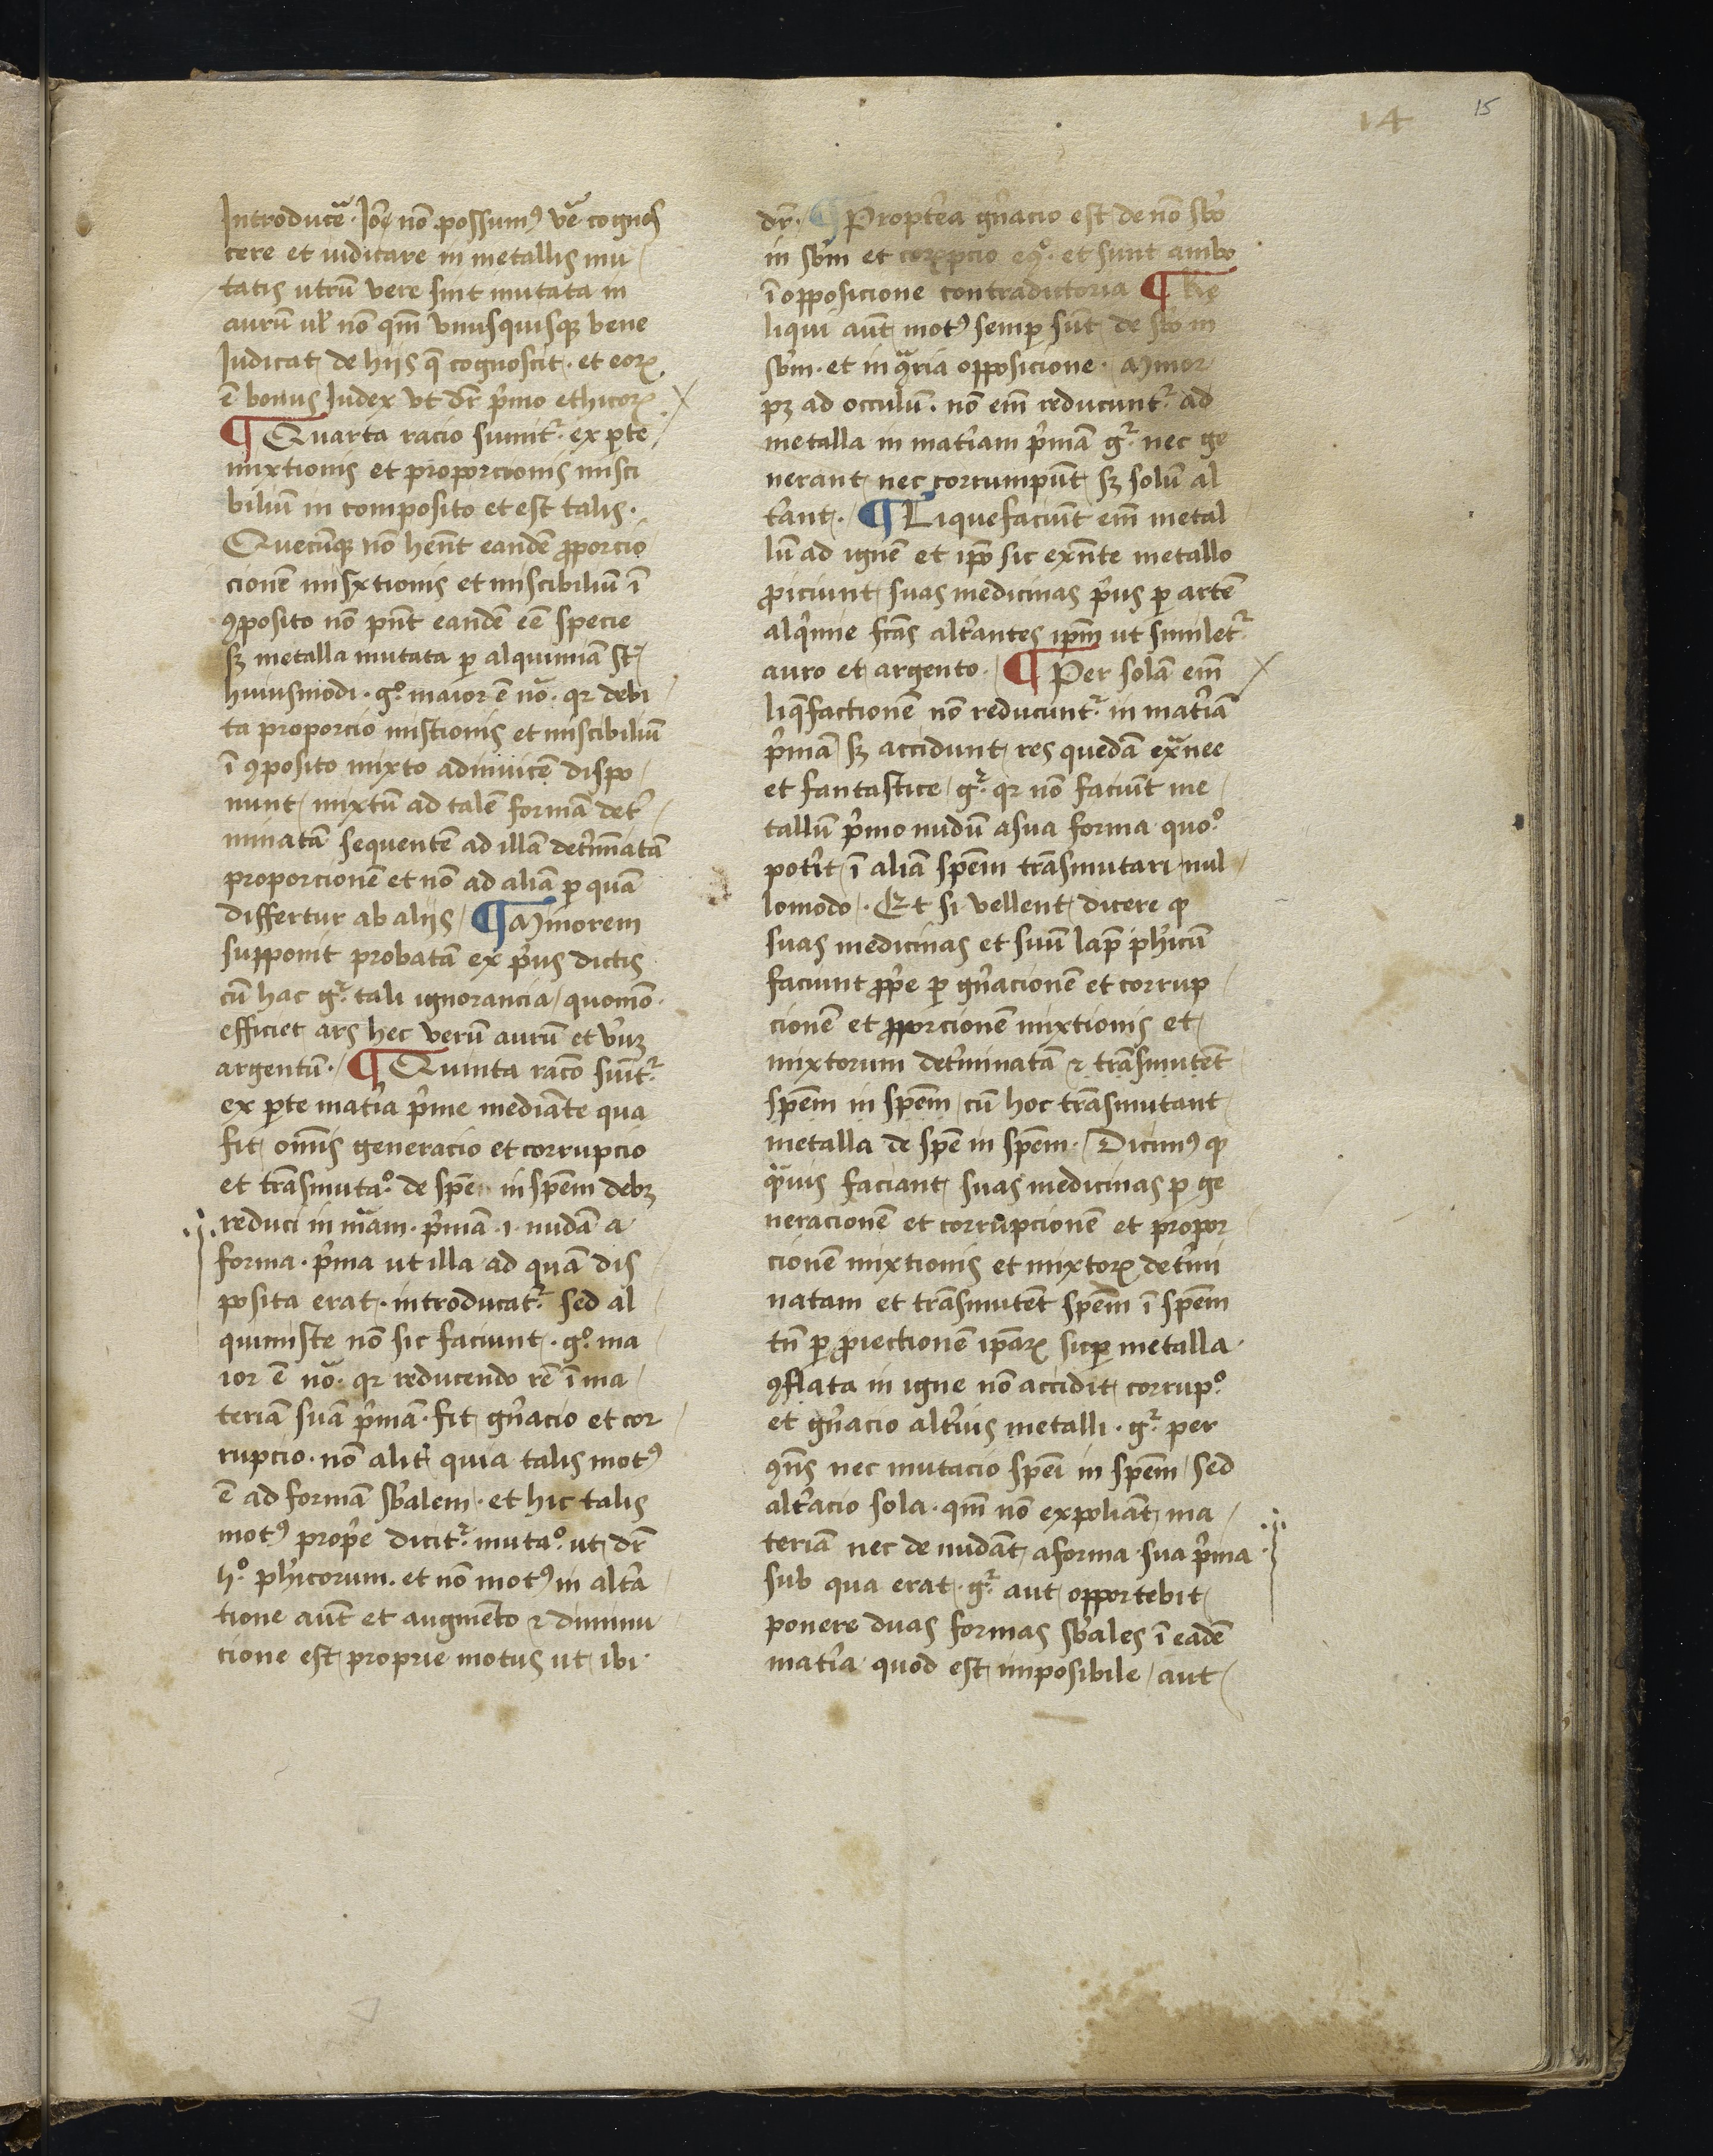 14
15
Introducẽ · Iõ non possumꝰ vẽ cognos
cere et iudicare in metallis mu
tatis utrũ vere sint mutata in
aurũ ul̃ nõ qm̃ vnusquisqꝫ bene
Iudicat de hiis q̃ cognoscit · et eoꝝ
ẽ bonus Iudex vt dr̃ p̃mo ethicoꝝ
¶ Quarta racio sumitᷣ ex ꝑte
mixtionis et proporcionis misci
biliũ in composito et est talis ·
Quecũqꝫ nõ hẽnt eandẽ ꝓporcio
cionẽ misxtionis et miscibiliũ ĩ
ꝯposito nõ pñt eandẽ eẽ specie
sꝫ metalla mutata ꝑ alquimiã st̃
huiusmodi · gͦ maior ẽ nã · qꝛ debi
ta proporcio mistionis et miscibiliũ
ĩ ꝯposito mixto adinuicẽ dispo
nunt mixtũ ad talẽ formã det̃
minatã sequentẽ ad illã det̃minatã
proporcionẽ et nõ ad aliã ꝑ quã
differtur ab aliis / ¶ Minorem
supponit probatã ex p̃us dictis
cũ hac gᷣ tali ignorancia / quomõ
efficiet ars hec verũ aurũ et v̾ꝫ
argentũ · / ¶ Quinta racõ sumitᷣ
ex ꝑte mat̾ia p̃me mediãte qua
fit om̃is generacio et corrupcio
et trãsmutaͦ de spẽ in spẽm debꝫ
reduci in mãm · p̃mã · i · nudã a
forma · p̃ma ut illa ad quã dis
posita erat · introducatᷣ sed al
quimiste nõ sic faciunt · gͦ ma
ior ẽ nã · qꝛ reducendo rẽ ĩ ma
teriã suã p̃mã · fit gñacio et cor
rupcio · nõ alit̾ quia talis motꝰ
ẽ ad formã sb̾alem · et hic talis
motꝰ prop̾e dicitᷣ mutaͦ · ut dr̃
hͦ ph̾icorum · et nõ motꝰ in alt̾a
tione aũt et augmẽto ⁊ diminu
cione est proprie motus ut ibi ·
dr̃ · ¶ Propt̾ea gñacio est de nõ sb̾o
in sb̾m et corꝝpcio eqͦ · et sunt ambo
ĩ opposicione contradictoria ¶ Re
liqui aũt motꝰ semꝑ sũt de sb̾o in
sb̾m · et in ꝯ̃ria opposicione · Minor
pꝫ ad occulũ · nõ em̃ reducuntᷣ ad
metalla in mat̾iam p̃mã gᷣ nec ge
nerant nec corrumpũt sꝫ solũ al
t̾ant · ¶ Liquefaciũt em̃ metal
lũ ad ignẽ et ip̃o sic exñte metallo
ꝓiciunt suas medicinas p̃us ꝑ artẽ
alq̾mie fc̃as alt̾antes ip̃m ut similetᷣ
auro et argento · ¶ Per solã em̃
liq̃factionẽ nõ reducuntᷣ in mat̾iã
p̃mã sꝫ accidunt res quedã ex̃nee
et fantastice gᷣ qꝛ nõ faciũt me
tallũ p̃mo nudũ a sua forma quoͦ
pot̾it ĩ aliã spẽm trãsmutari nul
lomodo · Et si vellent dicere ꝙ
suas medicinas et suũ lap̃ ph̾icũ
faciunt ꝓp̾e ꝑ gñacionẽ et corrup
cionẽ et ꝓporcionẽ mixtionis et
mixtorum det̾minatã ⁊ trãsmutẽt
spẽm in spẽm / cũ hoc trãsmutant
metalla de spẽ in spẽm · Dicimꝰ ꝙ
q̃uis faciant suas medicinas ꝑ ge
neracionẽ et corrupcionẽ et propor
cionẽ mixtionis et mixtoꝝ det̾mi
natam et trãsmutẽt spẽm ĩ spẽm
tñ ꝑ ꝓiectionẽ ip̃aꝝ suꝑ metalla ·
ꝯflata in igne nõ accidit corrupͦ
et gñacio alt̾ius metalli · gᷣ per
ꝯñs nec mutacio spẽi in spẽm / sed
alt̾acio sola · qm̃ nõ expoliãt ma
teriã nec de nudãt a forma sua p̃ma
sub qua erat · gᷣ aut opportebit
ponere duas formas sb̾ales ĩ eadẽ
mat̾ia quod est imposibile / aut